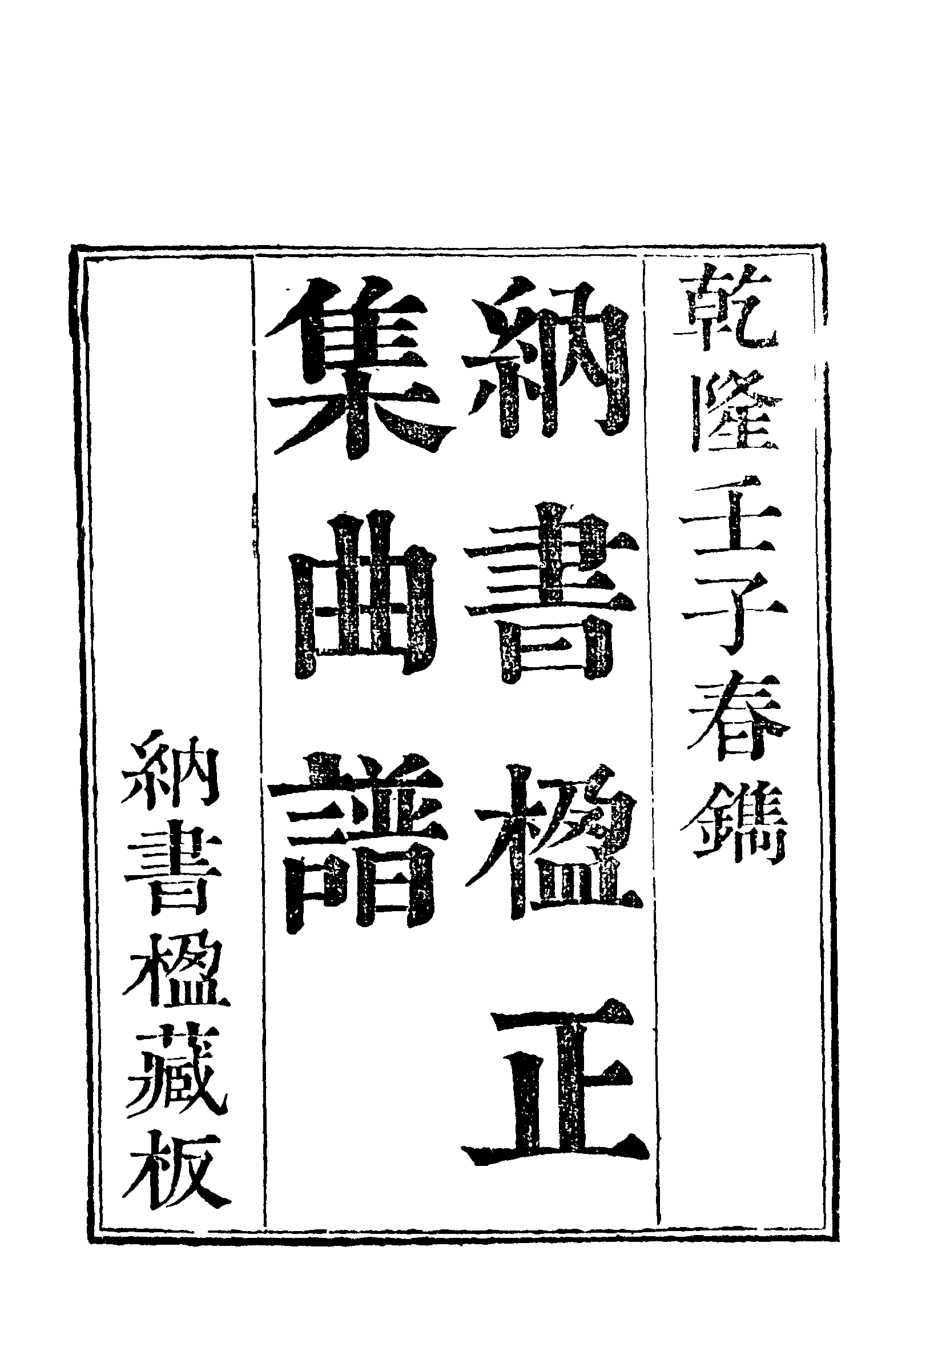 乾隆壬子春鐫
納書楹正
集曲譜
納書楹藏板